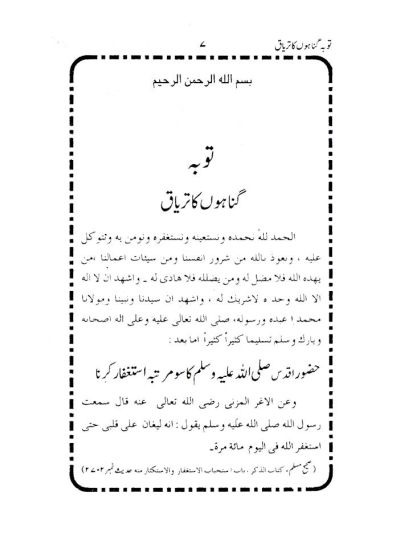 توبہ گناہوں کا تریاق
۷
بسم الله الرحمن الرحيم
توبہ
گناہوں کا تریاق
الحمد للہ نحمدہ ونستعينه ونستغفره ونومن به ونتوكل
عليه ، ونعوذ بالله من شرور انفسنا ومن سيئات اعمالنا ،من
يهده الله فلا مضل له ومن يضلله فلا هادی له ۔ واشهد ان لا اله
الا الله وحد ه لاشريك له ، واشهد ان سيدنا ونبينا ومولانا
محمد ا عبده ورسوله، صلى الله تعالى عليه وعلى اله اصحابه
وبارك وسلم تسليما كثيراً كثيراً اما بعد :
حضور اقدس صلی اللہ علیہ وسلم کا سو مرتبہ استغفار کرنا
وعن الاغر المزنی رضی الله تعالی عنه قال سمعت
رسول الله صلی الله عليه وسلم يقول : انه ليغان علی قلبی حتی
استغفر الله فی اليوم مائة مرة۔
(صحیح مسلم، كتاب الذكر، باب استحباب الاستغفار والاستكثار منه حدیث نمبر ۲۷۰۲)